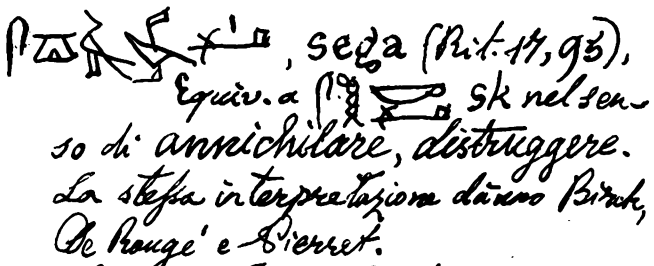 , sega (Rit. 17, 95),
Equiv. a sk nel sen-
so di annichilare, distruggere.
La stessa interpretazione dànno Birch,
De Rougé e Pierret.